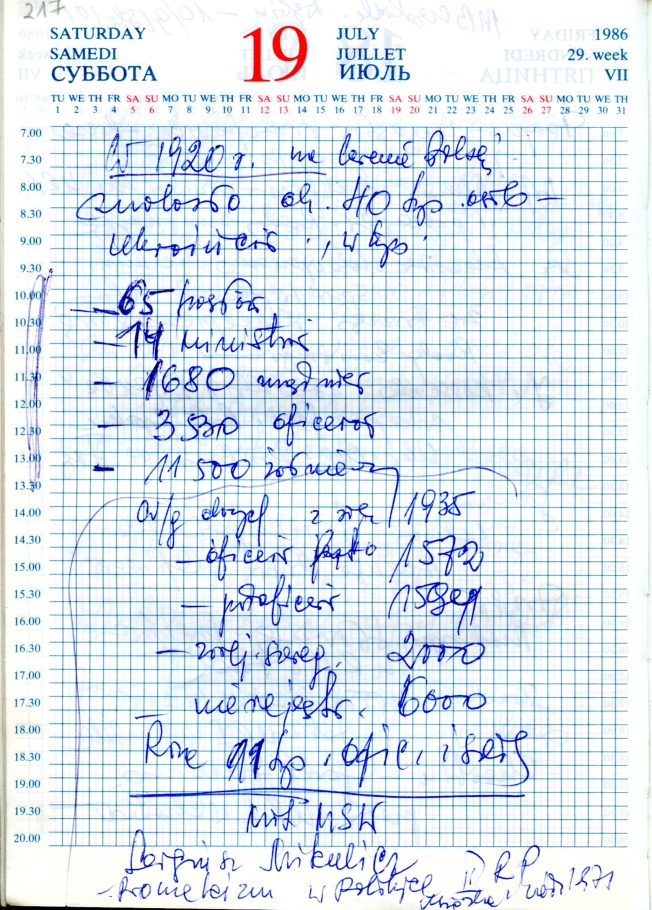 217
SATURDAY 19 JULY 1986
SAMEDI JUILLET 29. week
СУББОТА ИЮЛЬ VII
TU WE TH FR SA SU MO TU WE TH FR SA SU MO TU WE TH FR SA SU MO TU WE TH FR SA SU MO TU WE TH
1 2 3 4 5 6 7 8 9 10 11 12 13 14 15 16 17 18 19 20 21 22 23 24 25 26 27 28 29 30 31
7.00
7.30 W 1920 r. na terenie Polski
8.00
8.30 znalazło ok. 40 tys. osób —
9.00 Ukraińców, w tym:
9.30
10.00 — 65 posłów
10.30
11.00 — 14 ministrów
11.30 — 1680 urzędników
12.00
12.30 — 3530 oficerów
13.00 — 11 500 żołnierzy
13.30
14.00 W/g danych z 1935
14.30 — oficerów 1572
15.00
15.30 — podoficerów
16.00
16.30 — szereg. 2000
17.00
17.30 — nierejestr. 6000
18.00
18.30 Raz. 11 tys. ofic. i szereg
19.00
19.30 MSW
20.00
Sergiusz Mikulicz
Prometeizm w Polityce II RP
1971